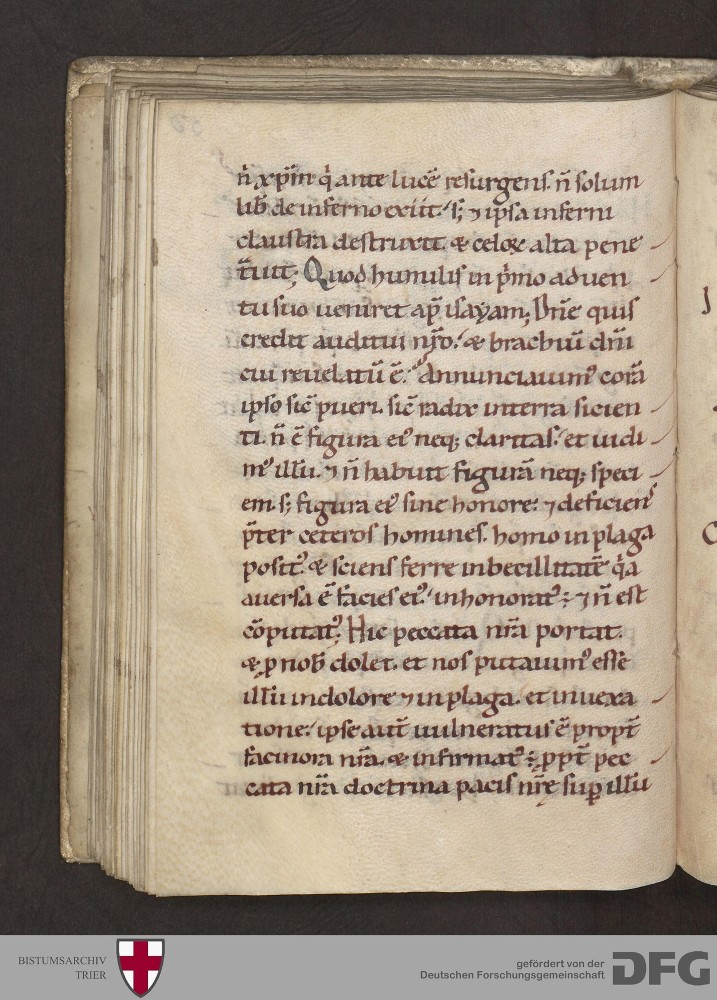 n̄ xp̄m q̇ ante lucē resurgens. n̄ solum
lib̄ de inferno exiit. s; ⁊ ipsa inferni
claustra destruxit. & celox alta pene
t̄uit; Quod humilis in p̄mo aduen
tu suo ueniret ap̄ isayam; Dn̄e quis
credit auditui nr̄o. & brachiū dn̄i
cui reuelatū ē. Annunciauim᾽ corā
ipso sic̄ pueri. sic̄ radix in terra sicien
ti. n̄ ē figura ei᾽ neq; claritas. et uidi
m᾽ illū. ⁊ n̄ habuit figurā neq; speci
em. s; figura ei᾽ sine honore. ⁊ deficiens
p̄ter ceteros homines. homo in plaga
posit᾽. & sciens ferre inbecillitatē q̇a
auersa ē facies ei᾽. inhonorat᾽ ÷ ⁊ n̄ est
cōputat᾽; Hic peccata nr̄a portat.
& p nob̄ dolet. et nos putauim᾽ esse
illū in dolore ⁊ in plaga. et in uexa
tione. ipse aut̄ uulneratus ē propt̄
facinora nr̄a. & infirmat᾽ ÷ ppt̄ pec
cata nr̄a doctrina pacis nr̄ę sup illū
BISTUMSARCHIV
TRIER
gefördert von der
Deutschen Forschungsgemeinschaft
DFG